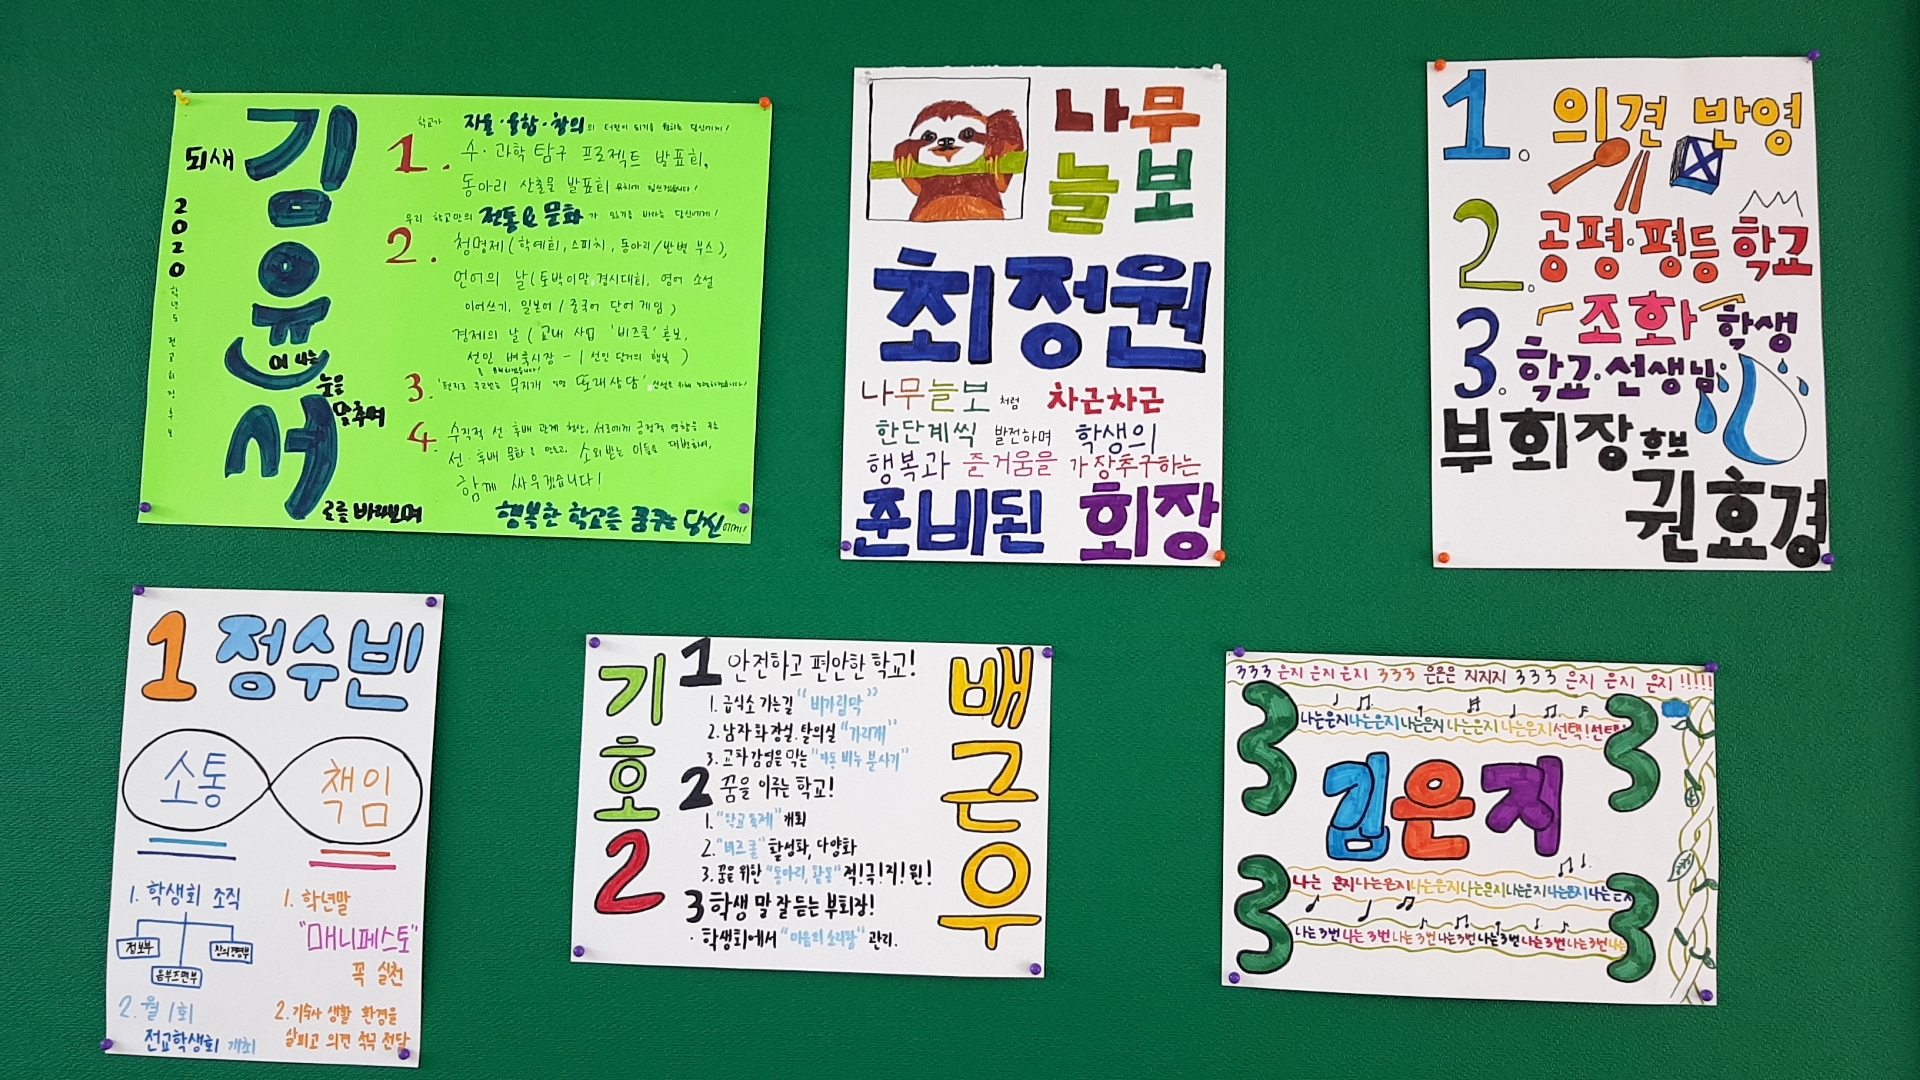 김유서
되새
이 나는
눈을
맞추며
로를 바라보며
2020
학년도 전교회장후보
학교가 자율·융합·창의의 터전이 되기를 원하는 당신에게!
1. 수·과학 탐구 프로젝트 발표회,
동아리 산출물 발표회
우리 학교만의 전통&문화가 있기를 바라는 당신에게!
2. 청명제(학예회, 스피치, 동아리/반별 부스),
언어의 날(토박이말 경시대회, 영어 소설
이어쓰기, 일본어/중국어 단어 게임)
경제의 날(교내 사업 '비즈쿨' 홍보,
선인 벼룩시장 - 선인 단거의 행복)
3. 무지개 또래상담
4. 수직적 선·후배 관계 청산, 서로에게 긍정적 영향을 주는
선·후배 문화를 만들고, 소외받는 이들을 대변하며,
함께 싸우겠습니다!
행복한 학교를 꿈꾸는 당신에게!
나무
늘보
최정원
나무늘보처럼 차근차근
한단계씩 발전하며 학생의
행복과 즐거움을 가장추구하는
준비된 회장
1. 의견 반영
2. 공평·평등 학교
조화 학생
3. 학교·선생님
부회장 후보
권효경
1 정수빈
소통 책임
1. 학생회 조직
정보부
음부즈먼부
창의경영부
2. 월 1회
전교학생회 개최
1. 학년말
"매니페스토"
꼭 실천
2. 기숙사 생활 환경을
살피고 의견 적극 전달
기호2
배근우
1 안전하고 편안한 학교!
1. 급식소 가는길 "비가림막"
2. 남자 화장실, 탈의실 "가리개"
3. 교차 감염을 막는 "자동 비누 분사기"
2 꿈을 이루는 학교!
1. "학교 축제" 개최
2. "비즈쿨" 활성화, 다양화
3. 꿈을 위한 "동아리, 활동" 적!극!지!원!
3 학생 말 잘 듣는 부회장!
· 학생회에서 "마음의 소리함" 관리.
333 은지 은지 은지 333 은은은 지지지 333 은지 은지 은지 !!!!!
나는은지 나는은지 나는은지 나는은지 나는은지 선택!선택!
3 3
김은지
3 3
나는 은지 나는은지 나는은지 나는은지 나는은지 나는은지 나는은지
나는3번 나는3번 나는3번 나는3번 나는3번 나는3번 나는3번 나는